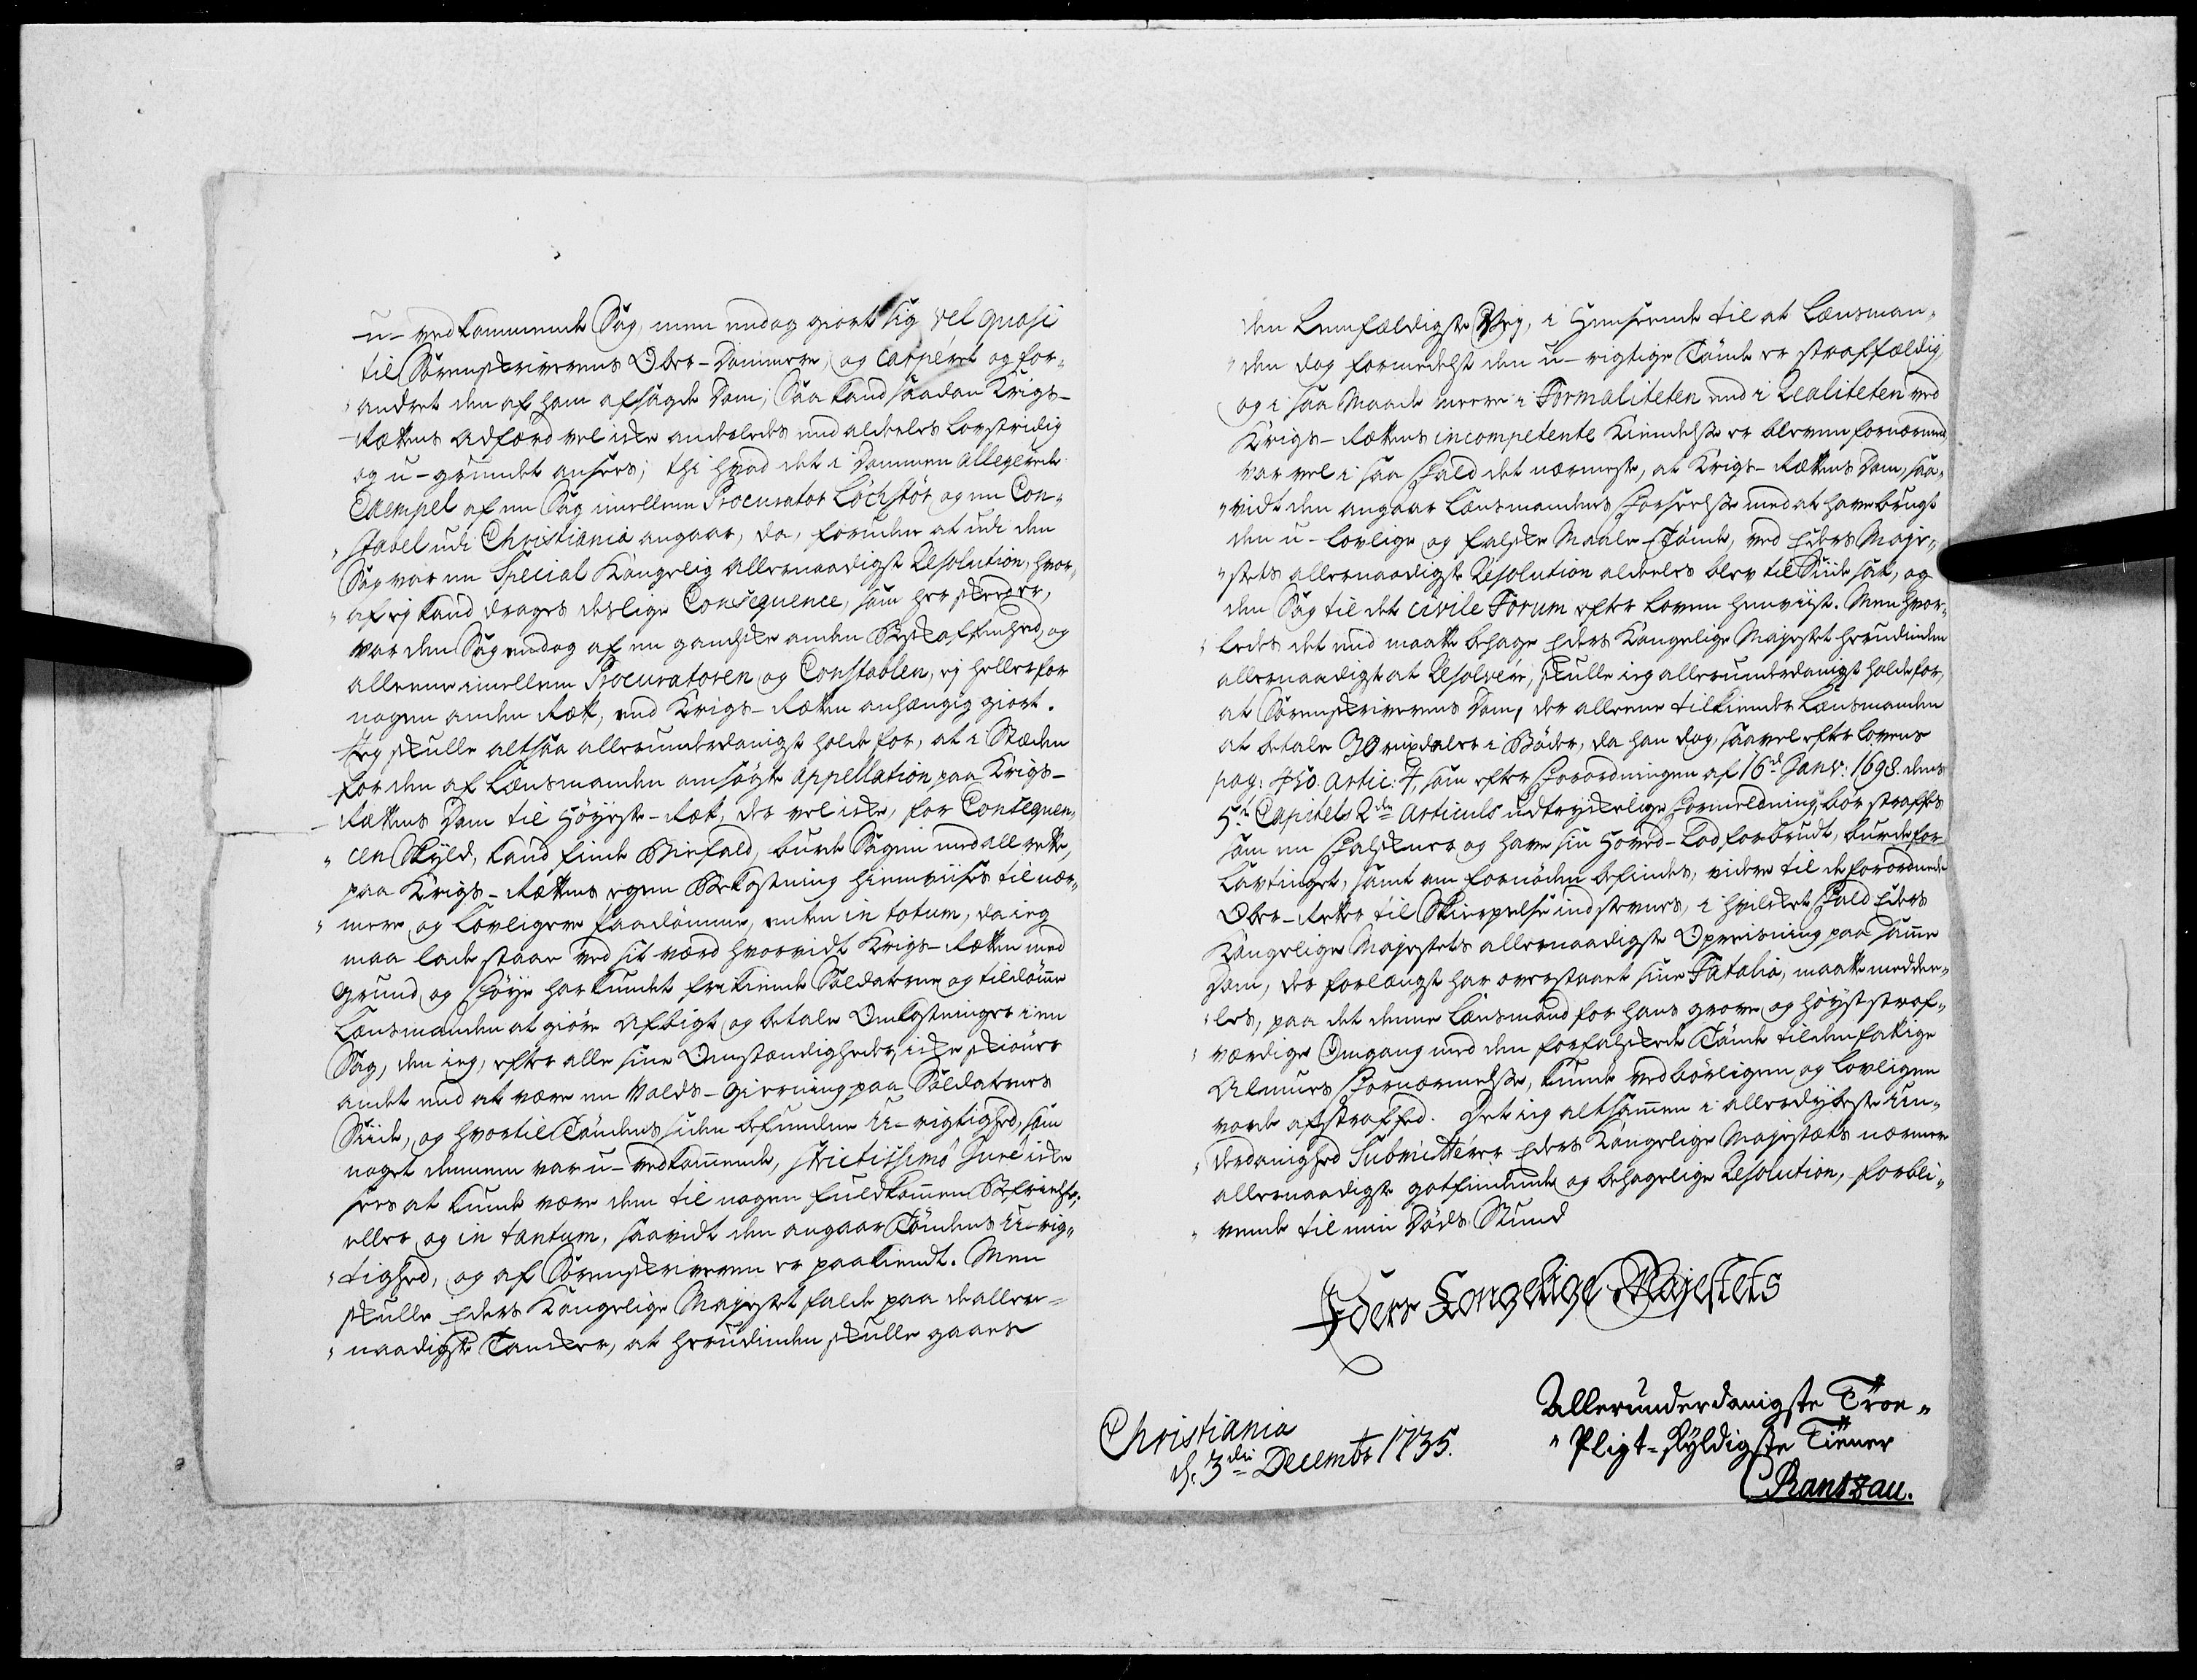 u-vedkommende Sag, men endog giort sig vel quasi
til Sorenskriverens Ober-Dommere, og casséret og for-
andret den af ham afsagde Dom; Saa kand saadan Krigs-
Rættens Adfærd vel icke anderledes end aldeeles lovstridig
og u-grundet ansees; thi hvad det i Dommen allegerede
Exempel af en Sag imellem Procurator Lochstör og en Con-
stabel udi Christiania angaar, da, foruden at udi den
Sag var en Special Kongelig allernaadigst Resolution, hvor-
af ej kand drages deslige Consequence, som her skeer,
var den Sag endog af en gandske anden Beskaffenhed, og
alleene imellem Procuratoren og Constablen, ej heller for
nogen anden Ræt, end Krigs-Rætten anhængig giort.
Jeg skulle altsaa allerunderdanigst holde for, at i Stæden
for den af Lænsmanden ansøgte Appellation paa Krigs-
Rættens Dom til Höyeste-Ræt, der vel icke, for Consequen-
cen Skyld, kand finde Biefald, burde Sagen med all rette,
paa Krigs-Rættens egen Bekostning hiemviises til nær-
mere og lovligere Paadömme, enten in totum, da jeg
maa lade staae ved sit værd hvorvidt Krigs-Rætten med
grund og Föye har kundet frikiende Soldaterne og tildömme
Lænsmanden at giöre Afbigt og betale Omkostninger i en
Sag, den jeg, efter alle sine Omstændigheder icke skiönner
andet end at være en Volds-Gierning paa Soldaternes
Siide, og hvortil Töndens siden befundne U-rigtighed, som
noget dennem var u-vedkommende, strictissimo Jure icke
sees at kunde være dem til nogen fuldkommen Befrielse;
eller og in tantum, saavidt den angaar Töndens U-rig-
tighed, og af Sorenskriveren er paakiendt. Men
skulle Eders Kongelige Majestet falde paa de aller-
naadigste Tancker, at herudinden skulle gaaes
den Lemfældigste Vej, i Henseende til at Lænsman-
den dog formedelst den u-rigtige Tönde er straffældig
og i saa Maade meere i Formaliteten end i Realiteten ved
Krigs-Rættens incompetente Kiendelse er bleven fornærmet,
var vel i saa Fald det nærmeste, at Krigs-Rættens Dom, saa-
vidt den angaar Lænsmandens Forseelse med at have brugt
den u-lovlige og falske Maale-Tönde, ved Eders Maje-
stets allernaadigste Resolution aldeeles blev til Siide sat, og
den Sag til det civile Forum efter Loven henviist. Men hvor-
ledes det end maatte behage Eders Kongelige Majestet herudinden
allernaadigst at Resolvere, skulle jeg allerunderdanigst holde for,
at Sorenskriverens Dom, der alleene tilkiender Lænsmanden
at betale 30 Rixdaler i Böder, da han dog, saavel efter Lovens
pag: 850. Artic: 4, som efter Forordningen af 16d Janv: 1698. dens
5te Capitels 2den Articuls udtryckelige Formeldning, bör straffes
som en Falskner og have sin Hoved-Lod forbrudt, burde for
Lavtinget, samt om fornöden befindes, videre til de forordnede
Ober-Retter til Skierpelse indstevnes, i hvilcket Fald Eders
Kongelige Majestets allernaadigste Opreisning paa samme
Dom, der forlængst har overstaaet sine Fatalia, maatte meddee-
les, paa det denne Lænsmand for hans grove og höyst straf-
værdige Omgang med den forfalskede Tönde til den fattige
Almues Fornærmelse, kunde ved börligen og lovligen
vorde afstraffed. Det jeg altsammen i allerdybeste Un-
derdanighed Submitterer Eders Kongelige Majestæts nærmere
allernaadigste gotfindende og behagelige Resolution, forbli-
vende til min Döds Stund
Eders Kongelige Majestets
Allerunderdanigste Troe-
Pligt-skyldigste Tiener
CRantzau.
Christiania
d. 3die Decembr 1735.